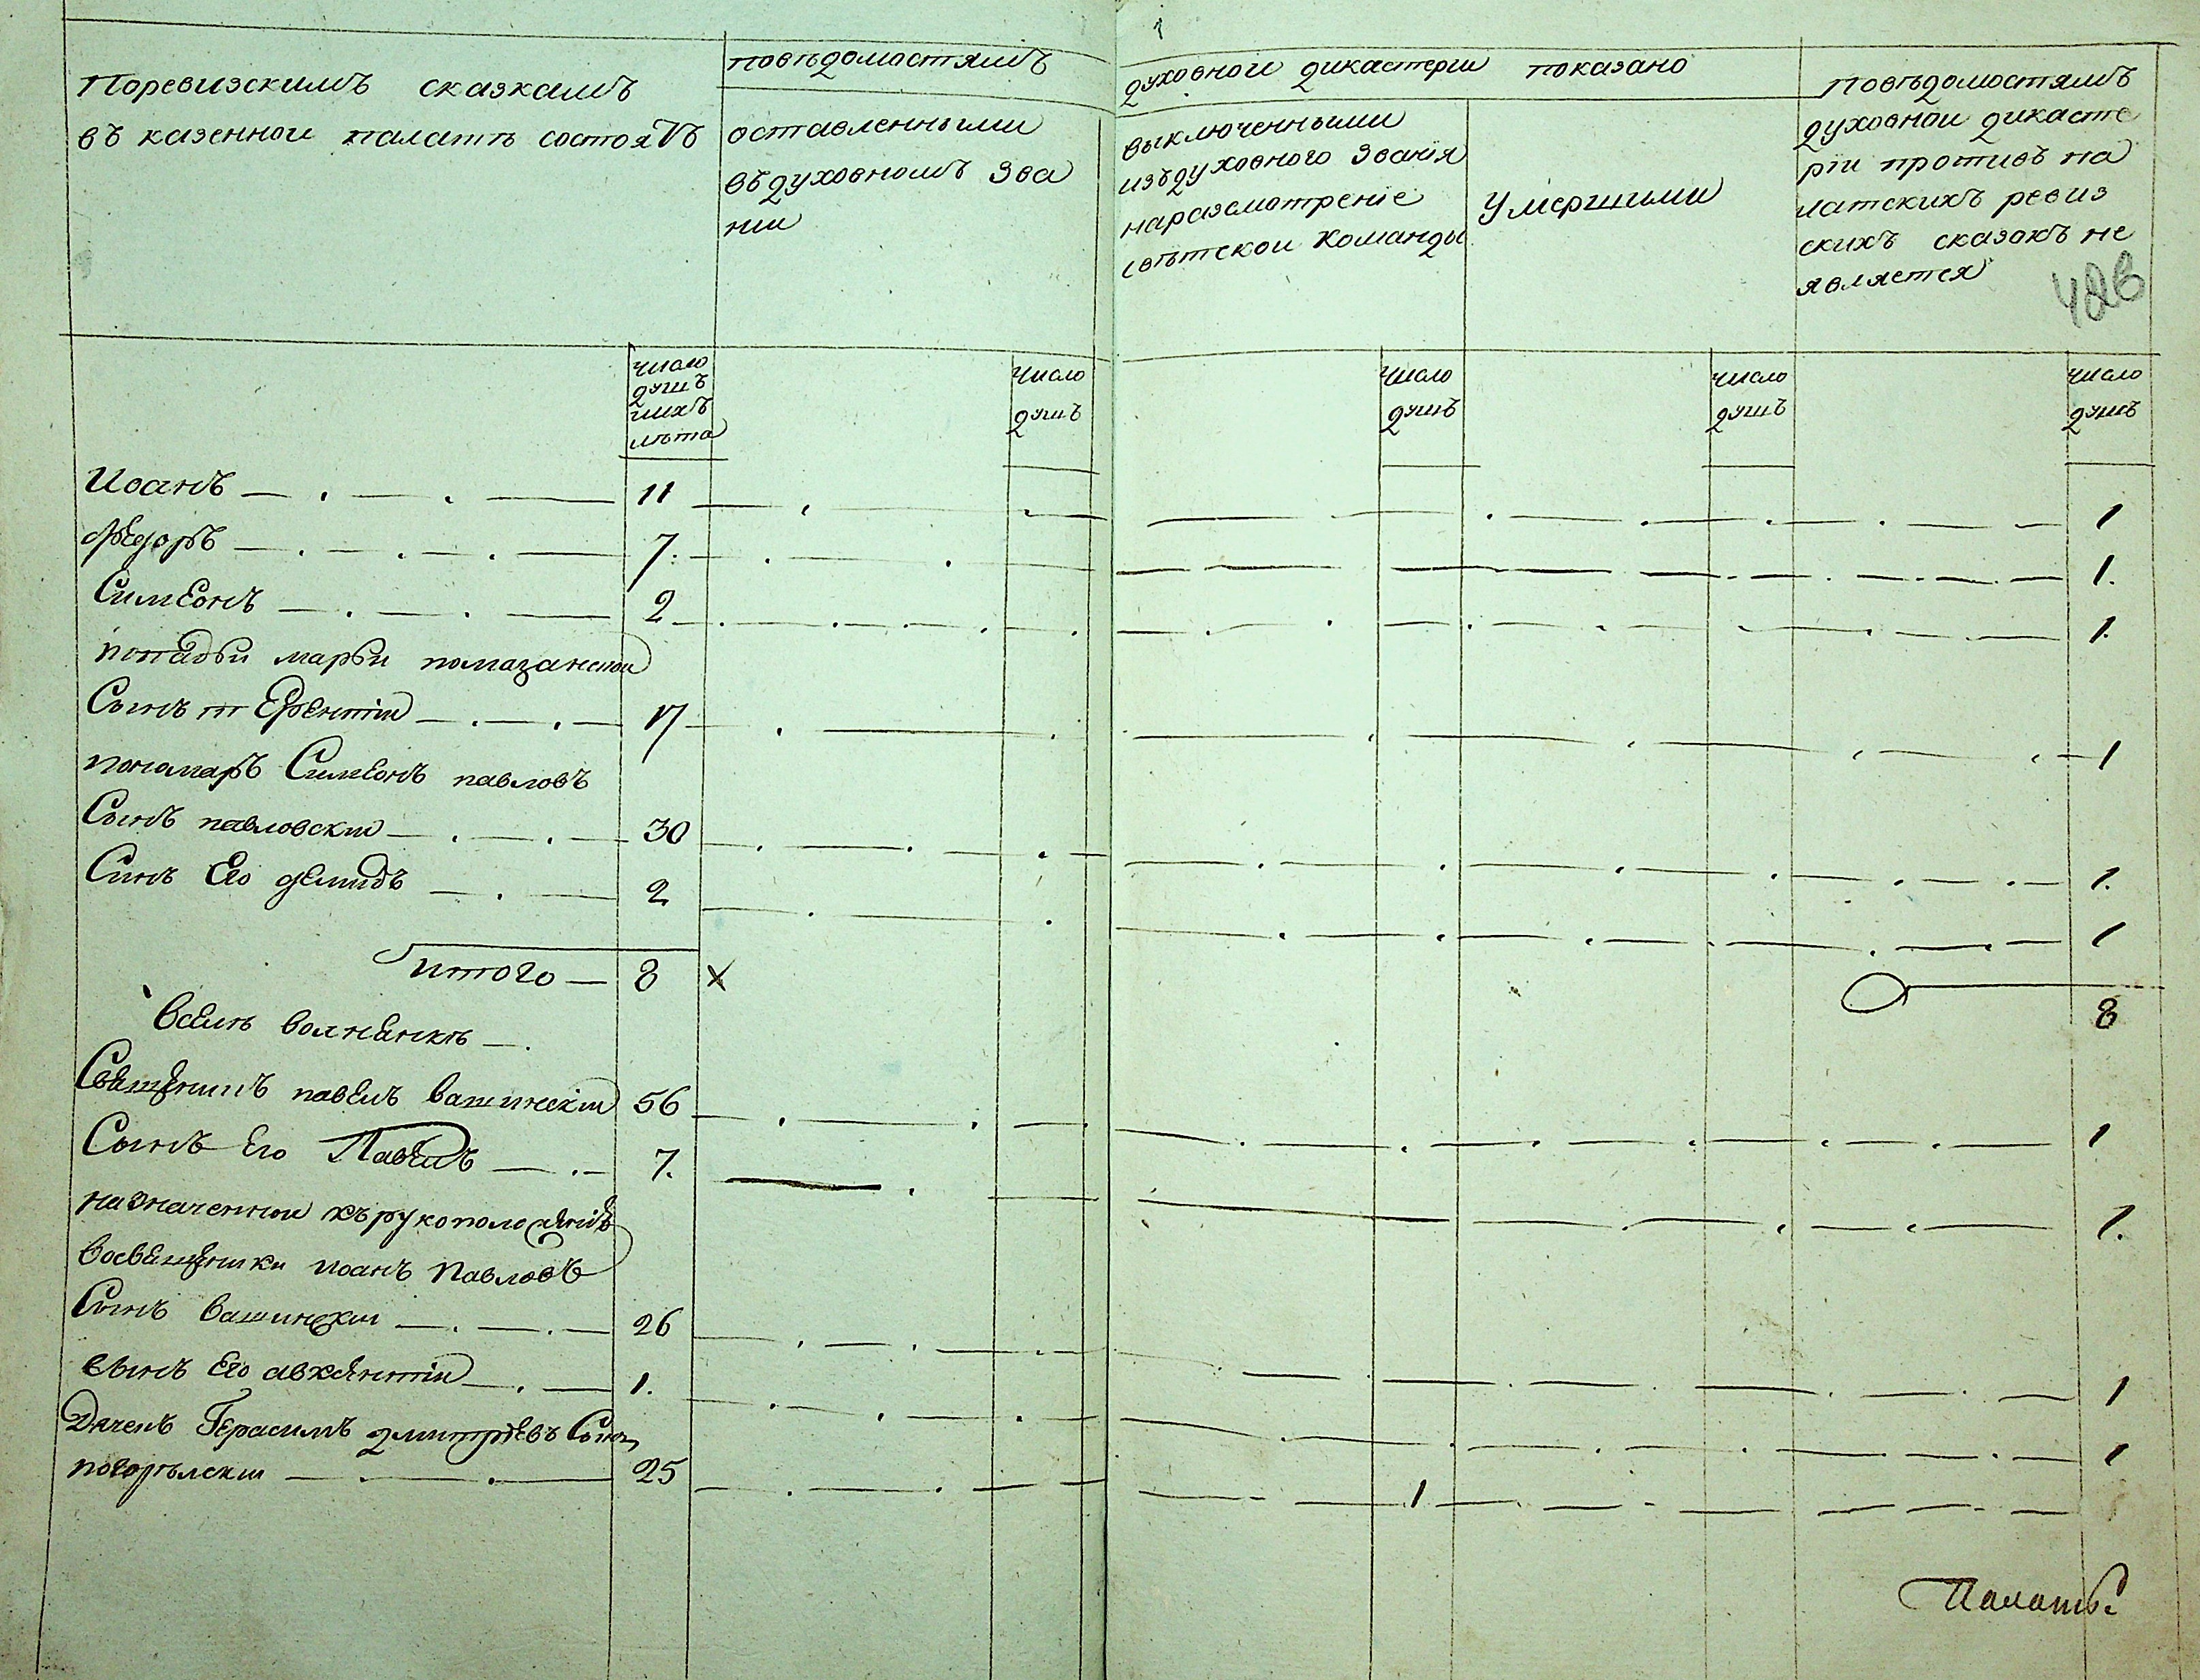 1
Поревизскимъ сказкамъ
въ казенной палатѣ состоятъ
повѣдомостямъ
оставленными
въдуховномъ зва
нии
духовной дикастерии показано
выключенными
изъдуховного звания
наразсмотрѣние
свѣтской команды
умершими
повѣдомостямъ
духовной дикасте
рїи противъ па
латскихъ ревиз
скихъ сказокъ не
является
число
душъ
ихъ
лѣта
число
душъ
число
душъ
число
душъ
число
душъ
Иоанъ 11 1
Федоръ 7. 1.
Симеонъ 2 1.
попадьи марьи помазанской
Сынъ терентїи 17 1
пономаръ Симеонъ павловъ
Сынъ павловский 30 1.
Синъ Его демидъ 2 1
итого 8 х 8
Вселѣ волненкѣ
Священникъ павелъ вашинский 56 1
Сынъ Его Павелъ 7. 1.
назначенной къ рукоположенїю
восвященники иоанъ Павловъ
Сынъ вашинский 26 1
сынъ Его авксентїи 1. 1
Дячекъ Герасимъ дмитрїевъ Сынъ
погорѣлский 25 1
Палаты